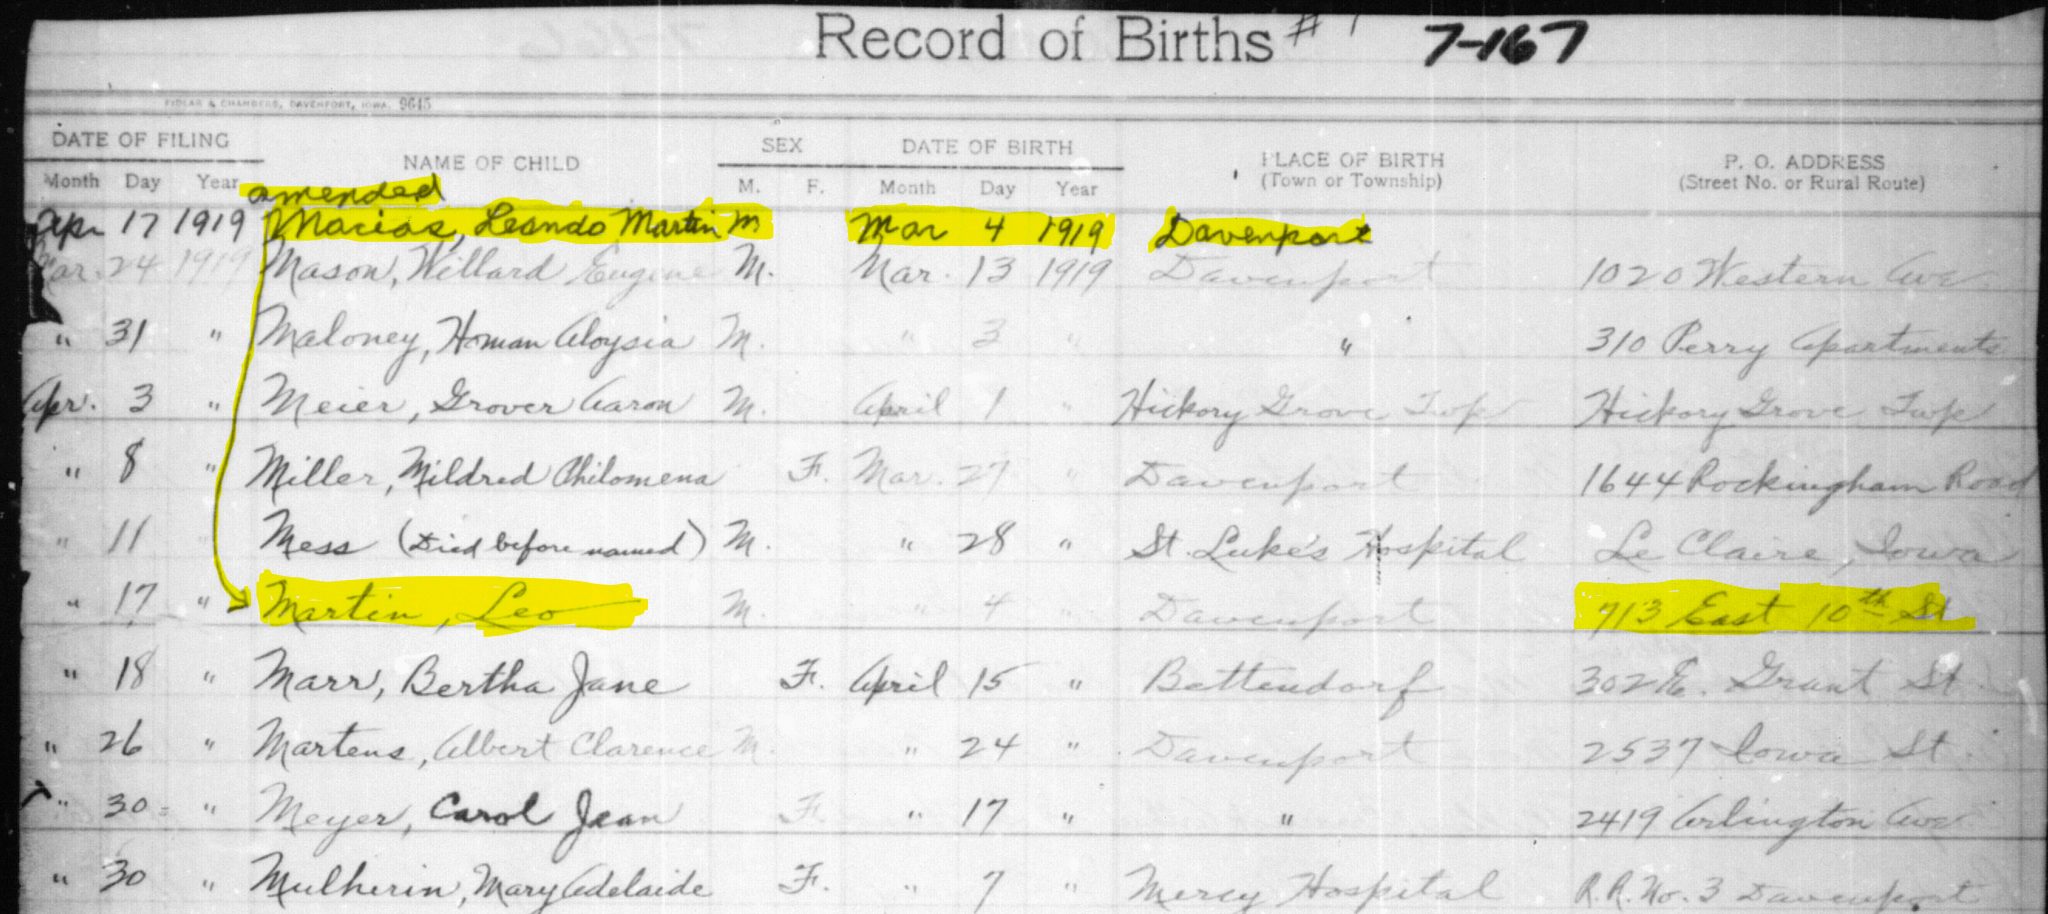 Record of Births #1 7-167
FIDLAR & CHAMBERS, DAVENPORT, IOWA. 9645
DATE OF FILING NAME OF CHILD SEX DATE OF BIRTH PLACE OF BIRTH P. O. ADDRESS
Month Day Year M. F. Month Day Year (Town or Township) (Street No. or Rural Route)
amended
Apr 17 1919 Macias, Leando Martin M Mar 4 1919 Davenport
Mar. 24 1919 Mason, Willard Eugene M. Mar. 13 1919 Davenport 1020 Western Ave
" 31 " Maloney, Homan Aloysia M. " 3 " " 310 Perry Apartments
Apr. 3 " Meier, Grover Aaron M. April 1 " Hickory Grove Twp Hickory Grove Twp
" 8 " Miller, Mildred Philomena F. Mar. 27 " Davenport 1644 Rockingham Road
" 11 " Mess (Died before named) M. " 28 " St. Luke's Hospital Le Claire, Iowa
" 17 " Martin, Leo M. " 4 " Davenport 713 East 10th St
" 18 " Marr, Bertha Jane F. April 15 " Bettendorf 302 E. Grant St.
" 26 " Martens, Albert Clarence M. " 24 " Davenport 2537 Iowa St.
" 30 " Meyer, Carol Jean F. " 17 " " 2419 Arlington Ave
" 30 " Mulherin, Mary Adelaide F. " 7 " Mercy Hospital R.R. No. 3 Davenport